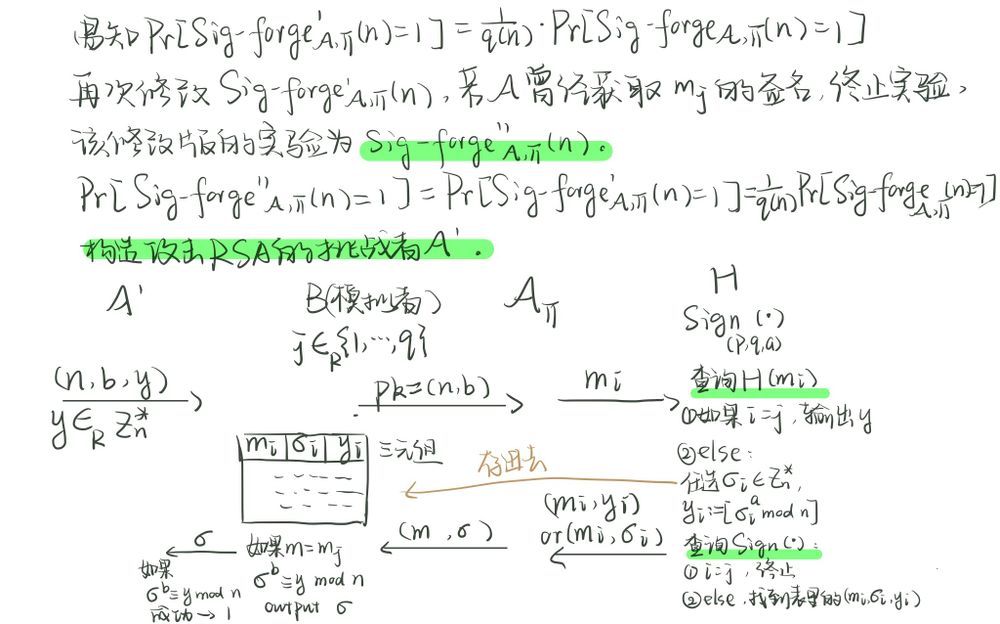 易知 Pr[Sig-forge'A,π(n)=1] = 1/q(n) · Pr[Sig-forgeA,π(n)=1]
再次修改 Sig-forge'A,π(n), 若 A 曾经获取 mj 的签名, 终止实验,
该修改版的实验为 Sig-forge''A,π(n)。
Pr[Sig-forge''A,π(n)=1] = Pr[Sig-forge'A,π(n)=1] = 1/q(n) Pr[Sig-forgeA,π(n)=1]
构造攻击RSA的挑战者A'.
A'
B(模拟者)
j∈R{1,…,q}
Aπ
H
Sign (·)
(p,q,a)
(n,b,y)
y∈R Zn*
pk=(n,b)
mi
查询H(mi)
①如果i=j, 输出y
②else:
任选σi∈Zn*,
yi:=[σi^a mod n]
查询Sign(·):
①i=j, 终止
②else, 找到表里的(mi,σi,yi)
mi | σi | yi
三元组
存进去
(mi,yi)
or(mi,σi)
(m,σ)
如果m=mj
σ^b≡y mod n
output σ
σ
如果
σ^b≡y mod n
成功→1